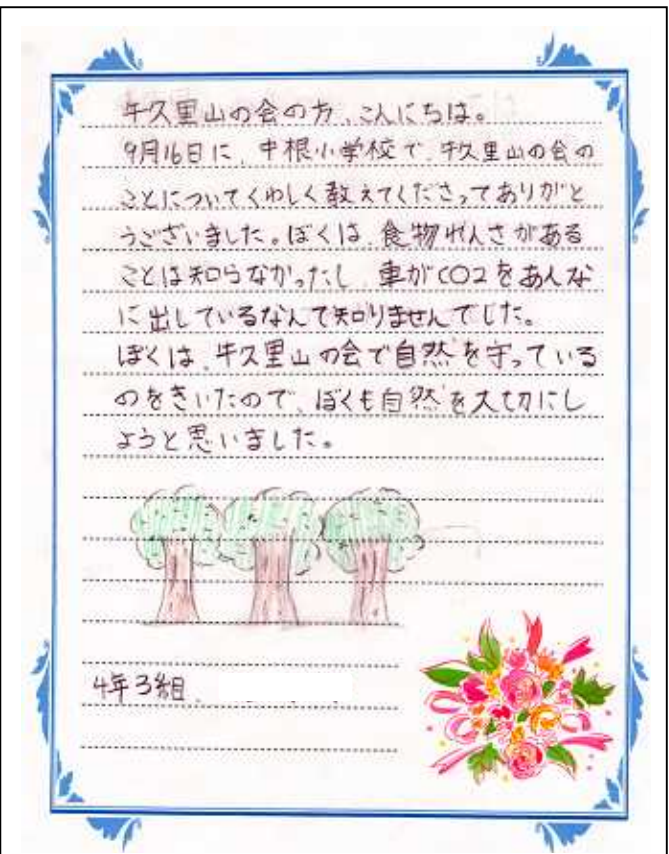 牛久里山の会の方、こんにちは。
9月16日に、中根小学校で、牛久里山の会の
ことについてくわしく教えてくださってありがと
うございました。ぼくは、食物れんさがある
ことは知らなかったし、車がCO2をあんな
に出しているなんて知りませんでした。
ぼくは、牛久里山の会で自然を守っている
のをきいたので、ぼくも自然を大切にし
ようと思いました。
4年3組、